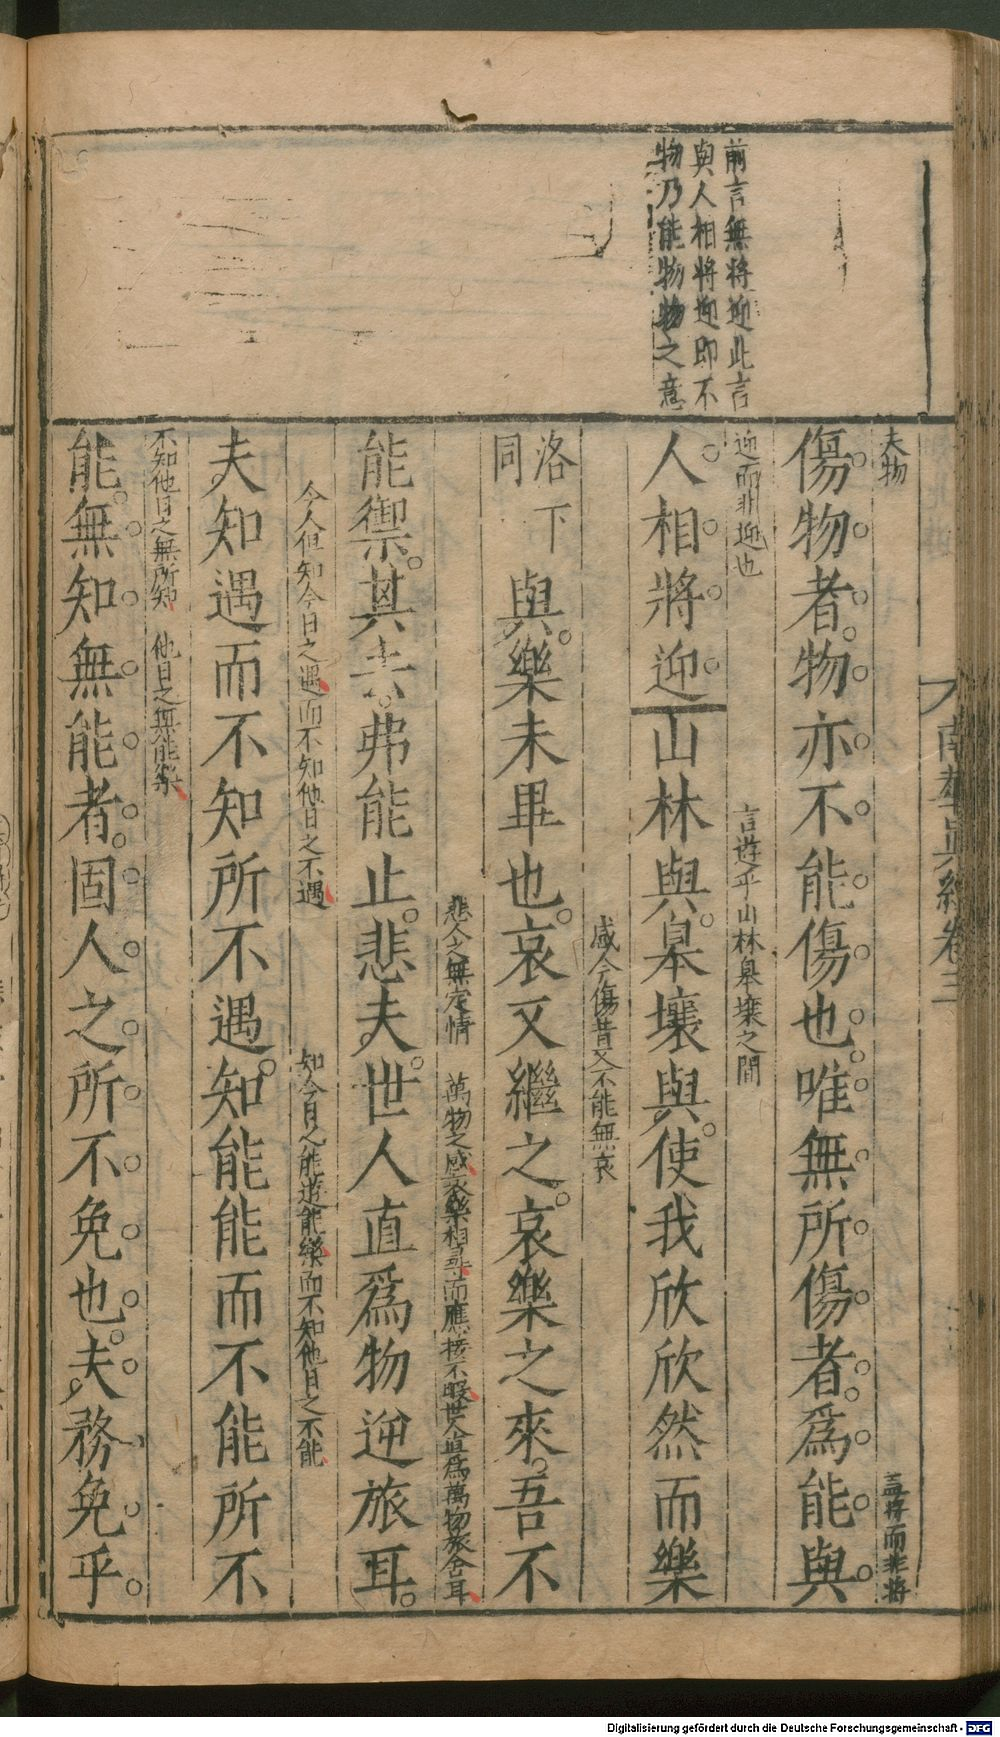 前言無將迎此言
與人相將迎即不
物乃能物物之意
南華真經卷三
夫物
蓋將而非將
傷物者物亦不能傷也唯無所傷者為能與
迎而非迎也
言遊乎山林皋壤之間
人相將迎山林與皋壤與使我欣欣然而樂
感今傷昔又不能無哀
洛下
同
與樂未畢也哀又繼之哀樂之來吾不
悲今之無定情
萬物之感哀樂相尋而應接不暇世人直為萬物旅舍耳
能禦其去弗能止悲夫世人直為物逆旅耳
今人但知今日之遇而不知他日之不遇
知今日之能遊能樂而不知他日之不能
夫知遇而不知所不遇知能能而不能所不
不知他日之無所知
他日之無能樂
能無知無能者固人之所不免也夫務免乎
Digitalisierung gefördert durch die Deutsche Forschungsgemeinschaft - DFG